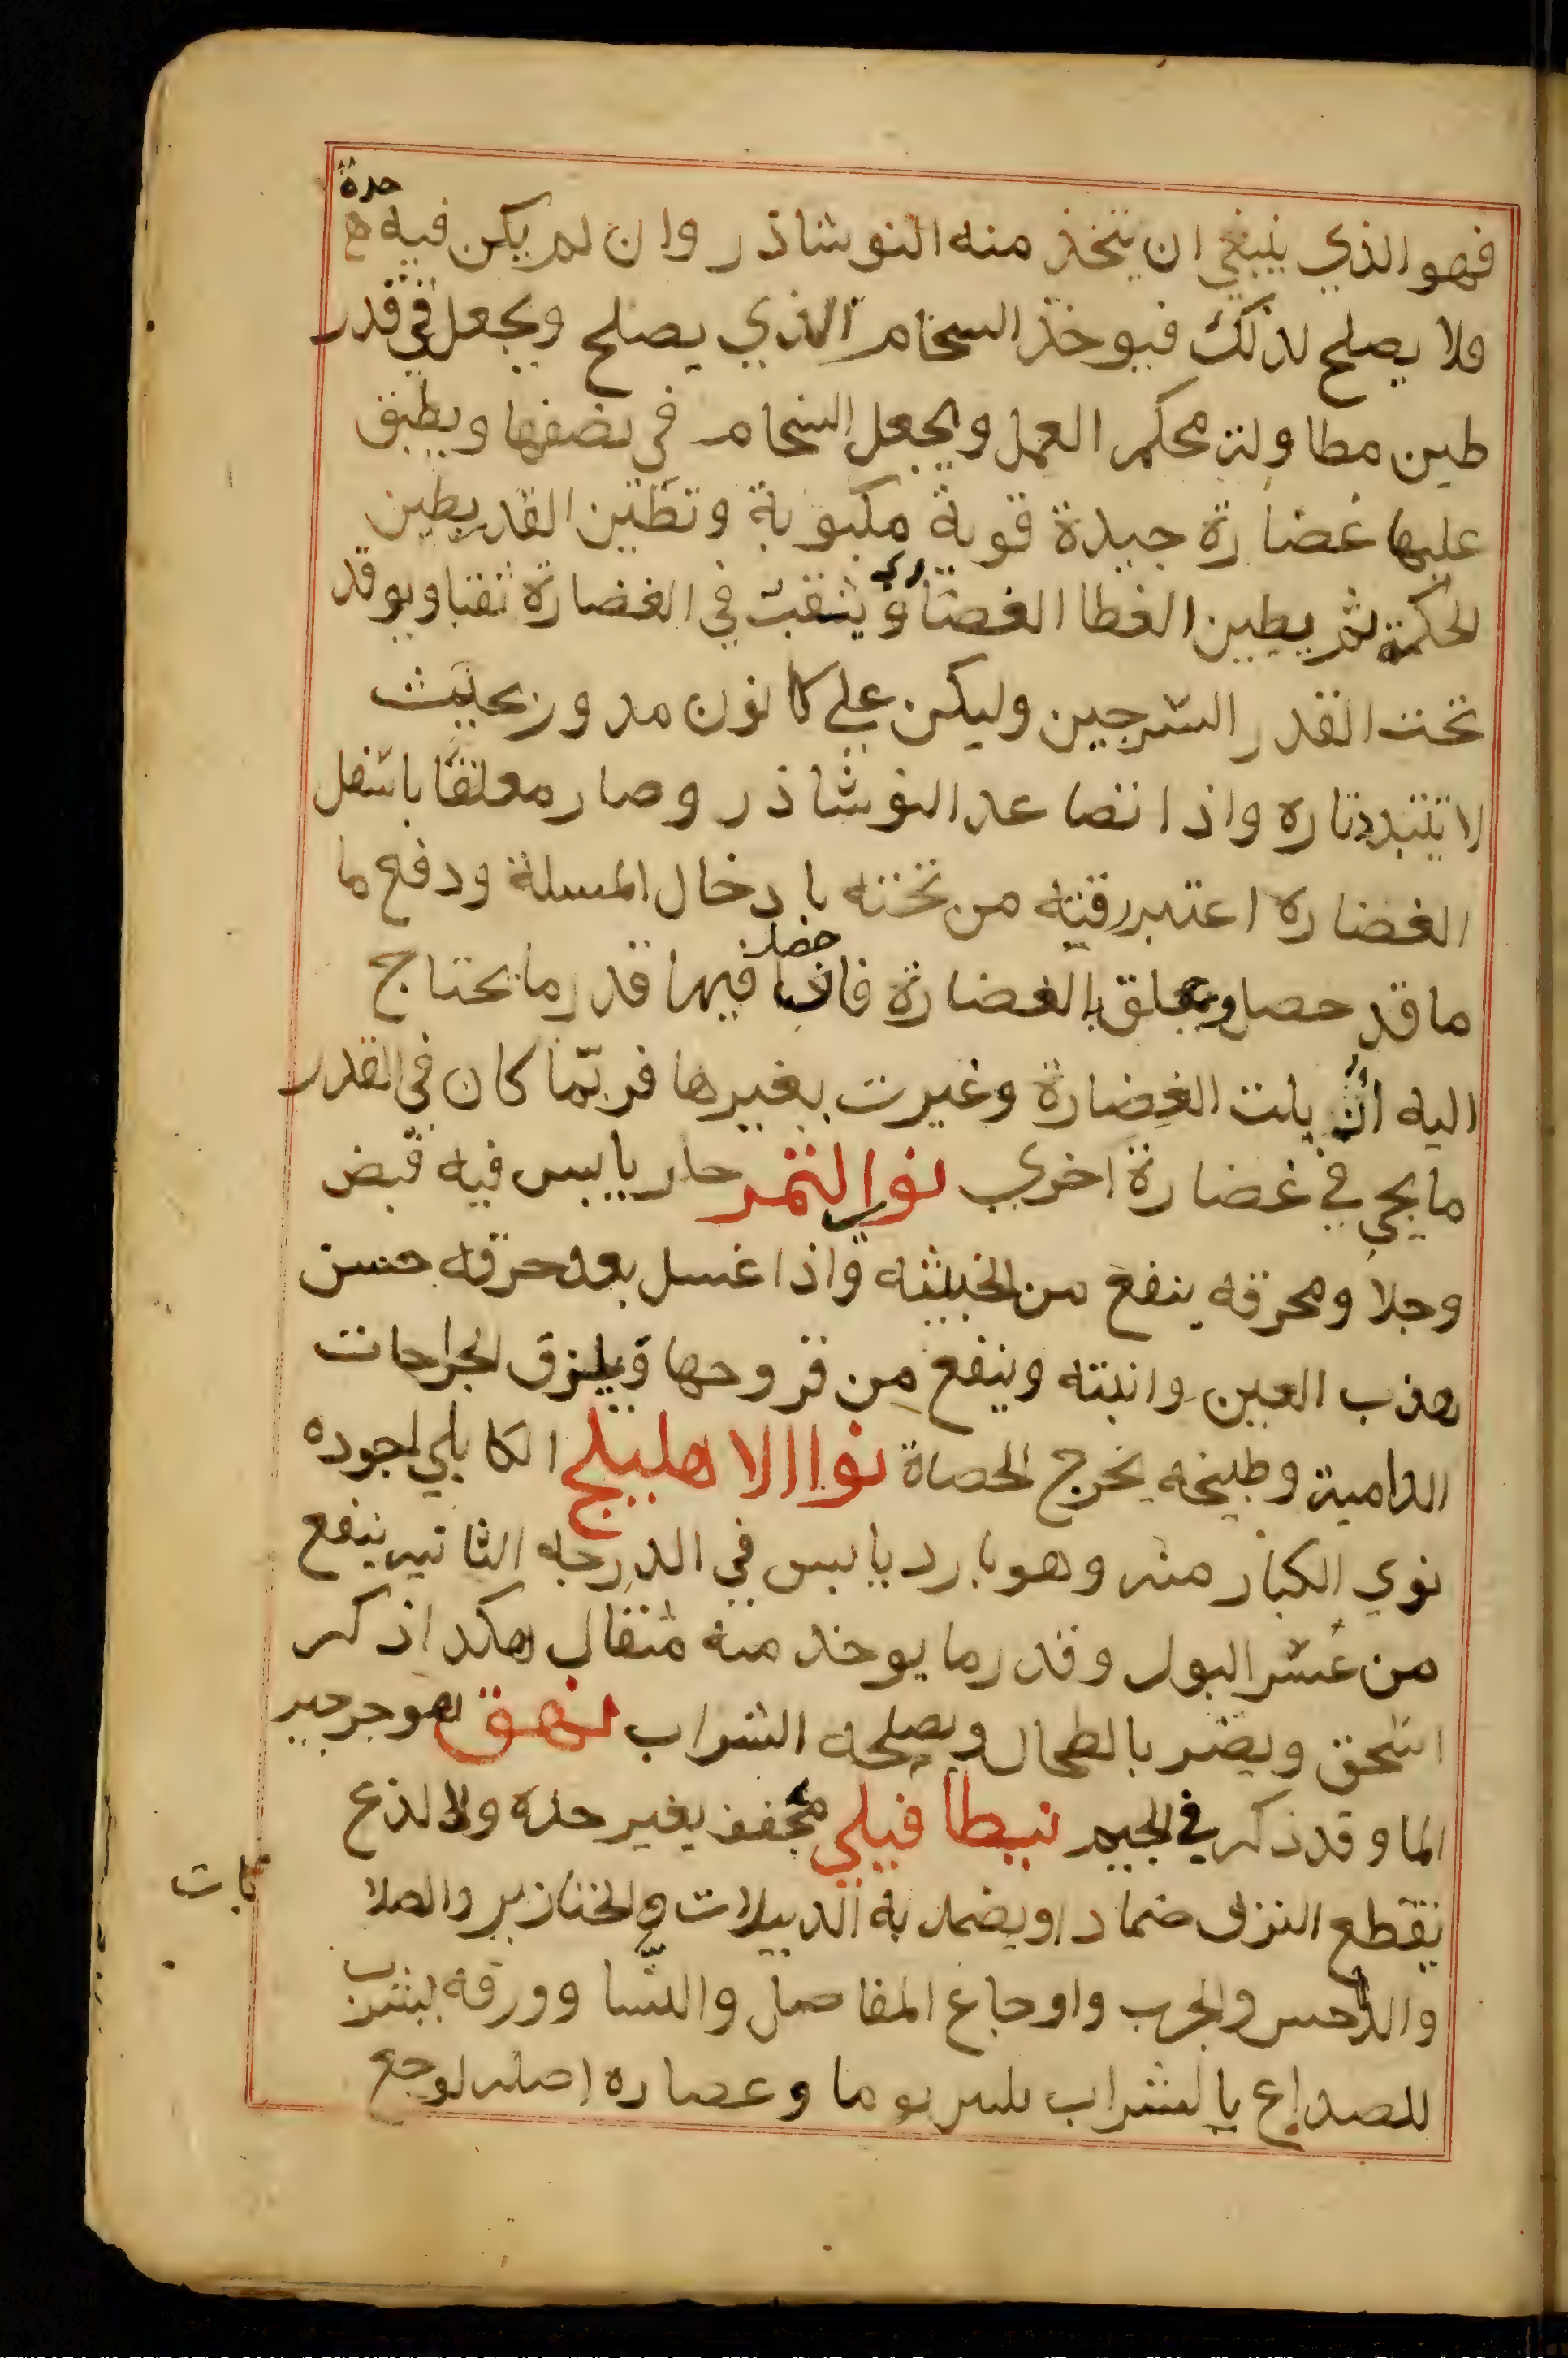 فهو الذي ينبغي ان يتخذ منه النوشاذر وان لم يكن فيه حدة
ولا يصلح لذلك فيوخذ السخام الذي يصلح ويجعل في قدر
طين مطاولة محكم العمل ويجعل السخام في نصفها ويطبق
عليها غضارة جيدة قوية مكبوبة وتطين القدر بطين
الحكمة ثم يطين الغطا الغضاري ويثقب في الغضارة ثقبا ويوقد
تحت القدر السرجين وليكن علي كانون مدور بحيث
لا يتبدد ناره واذا تصاعد النوشاذر وصار معلقا باسفل
الغضاره اعتبر رقته من تحته بادخال المسلة ودفع ما
ما قد حصل وتعلق بالغضارة فاذا حصل فيها قدر ما يحتاج
اليه ازيلت الغضارة وغيرت بغيرها فربما كان في القدر
ما يجي في غضارة اخري نوا التمر حار يابس فيه قبض
وجلا ومحرقه ينفع من الخبيثه واذا غسل بعد حرقه حسن
هذب العين وانبته وينفع من قروحها ويلزق الجراحات
الدامية وطبيخه يخرج الحصاة نوا الاهليلج الكابلي اجوده
نوي الكبار منه وهو بارد يابس في الدرجه الثانيه ينفع
من عسر البول وقدر ما يوخذ منه مثقال هكذا ذكر
اسحق ويضر بالطحال ويصلحه الشراب نهق هو جرجير
الما وقد ذكر في الجيم نيطافيلي مجفف بغير حده ولا لذع
يقطع النزف ضمادا ويضمد به الدبيلات والخنازير والصلا
بات
والداحس والجرب واوجاع المفاصل والنسا وورقه يشرب
للصداع بالشراب يوما وعصاره اصله لوجع